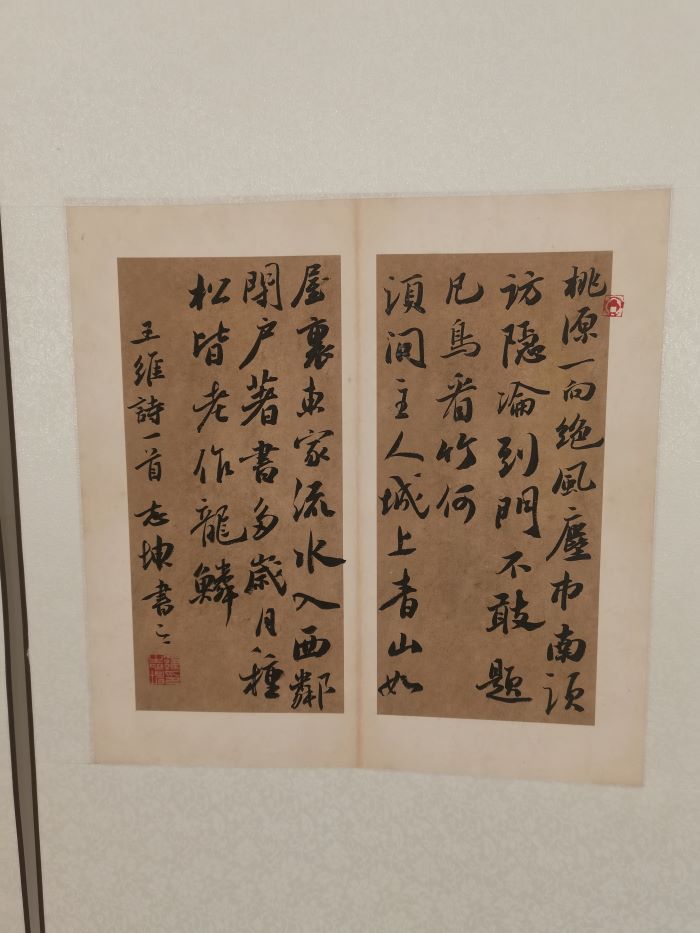 桃源一向絕風塵市南頭
訪隱淪到門不敢題
凡鳥看竹何
須問主人城上青山如
屋裏東家流水入西鄰
閉戶著書多歲月種
松皆老作龍鱗
王維詩一首 志坤書之